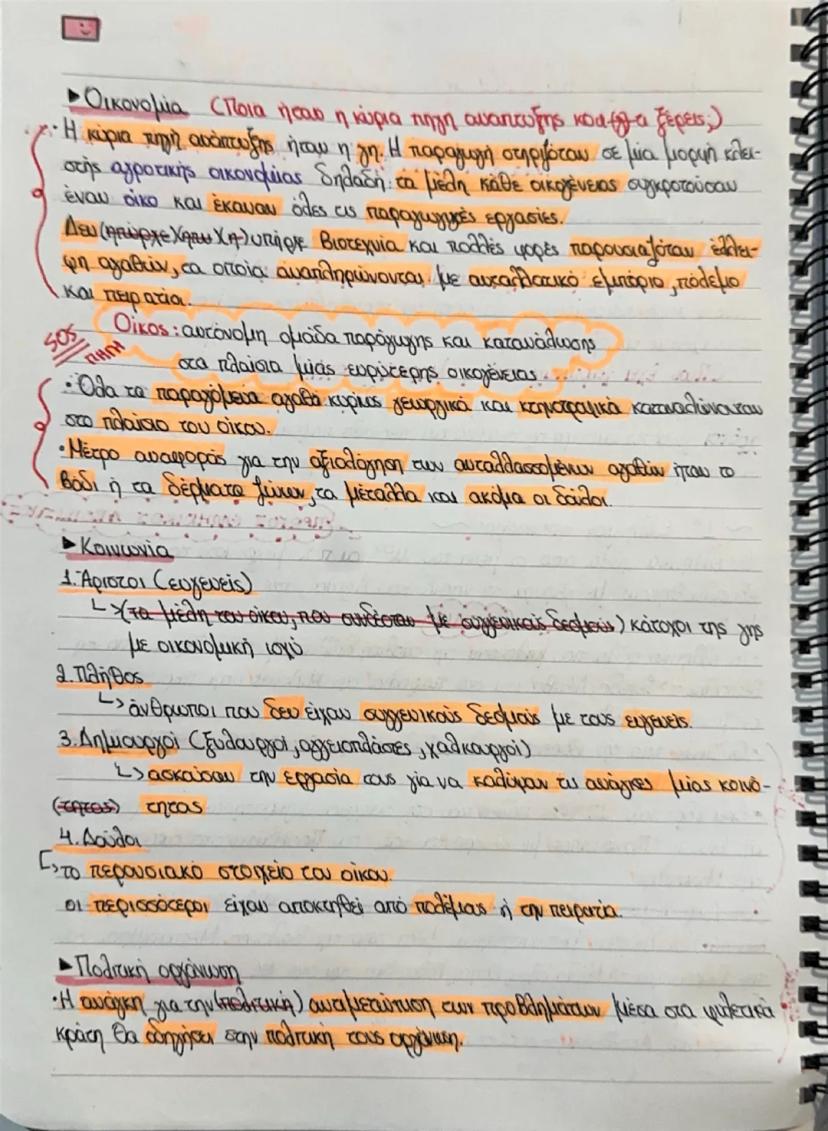 ▶Οικονομία (Ποια ήταν η κύρια πηγή αναπτυξης και ξέρεις;)
·Η κύρια πηγή ανάπτυξης ήταν η γη. Η παραγωγή στηριζόταν σε μία μορφή κλει-
στής αγροτικής οικονομίας δηλαδή: τα μέλη κάθε οικογένειας συγκροτούσαν
έναν οίκο και έκαναν όλες τις παραγωγικές εργασίες.
Δεν (υπήρχε)(ηπυ)(η) υπήρχε βιοτεχνία και πολλές φορές παρουσιαζόταν έλλει-
ψη αγαθών, τα οποία αναπληρώνονται με ανταλλατικό εμπόριο, πόλεμο
και πειρατία.
SOS ΠΗΓΗ
Οίκος: αυτόνομη ομάδα παράγωγης και κατανάλωσης
στα πλαίσια μίας ευρύτερης οικογένειας
·Όλα τα παραγόμενα αγαθά κυρίως γεωργικά και κτηνοτροφικά καταναλώνονταν
στο πλαίσιο του οίκου.
·Μέτρο αναφοράς για την αξιολόγηση των ανταλλασσομένων αγαθών ήταν το
βόδι ή τα δέρματα ζώων, τα μέταλλα και ακόμα οι δούλοι.
▶Κοινωνία
1.Άριστοι (ευγενείς)
↳(τα μέλη του οίκου, που συνδέοταν με συγγενικούς δεσμούς) κάτοχοι της γης
με οικονομική ισχύ
2.Πλήθος
↳άνθρωποι που δεν είχαν συγγενικούς δεσμούς με τους ευγενείς.
3.Δημιουργοί (ξυλουργοί, αγγειοπλάστες, χαλκουργοί)
↳ασκούσαν την εργασία τους για να καλύψουν τις ανάγκες μίας κοινό-
(τητας) τητας
4.Δούλοι
↳το περουσιακό στοιχείο του οίκου
οι περισσότεροι είχαν αποκτηθεί από πολέμους ή την πειρατία.
▶Πολιτική οργάνωση
·Η ανάγκη για την (πολιτική) αντιμετώπιση των προβλημάτων μέσα στα φυλετικά
κράτη θα οδηγήσει στην πολιτική τους οργάνωση.